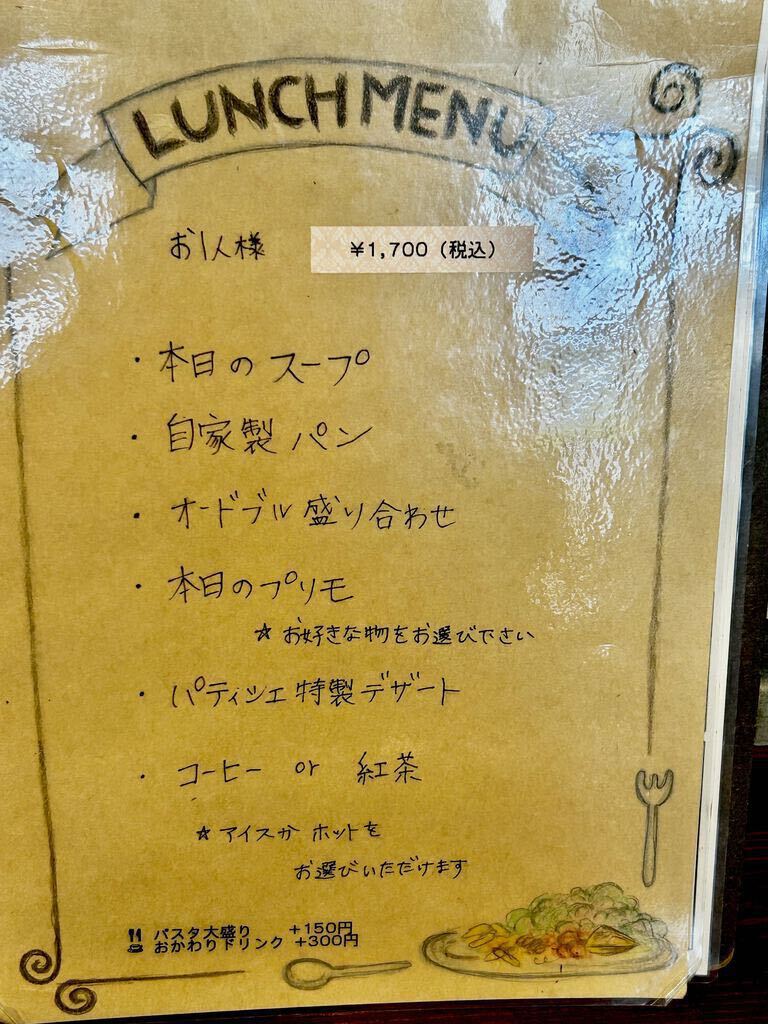 LUNCH MENU
お1人様 ¥1,700（税込）
・本日のスープ
・自家製パン
・オードブル盛り合わせ
・本日のプリモ
☆お好きな物をお選び下さい
・パティシェ特製デザート
・コーヒー or 紅茶
☆アイスか ホットを
お選びいただけます
パスタ大盛り +150円
おかわりドリンク +300円